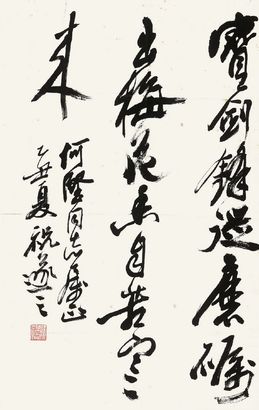 寶劍鋒從磨礪
出梅花香自苦寒
来
何同志屬正
夏祝遂之